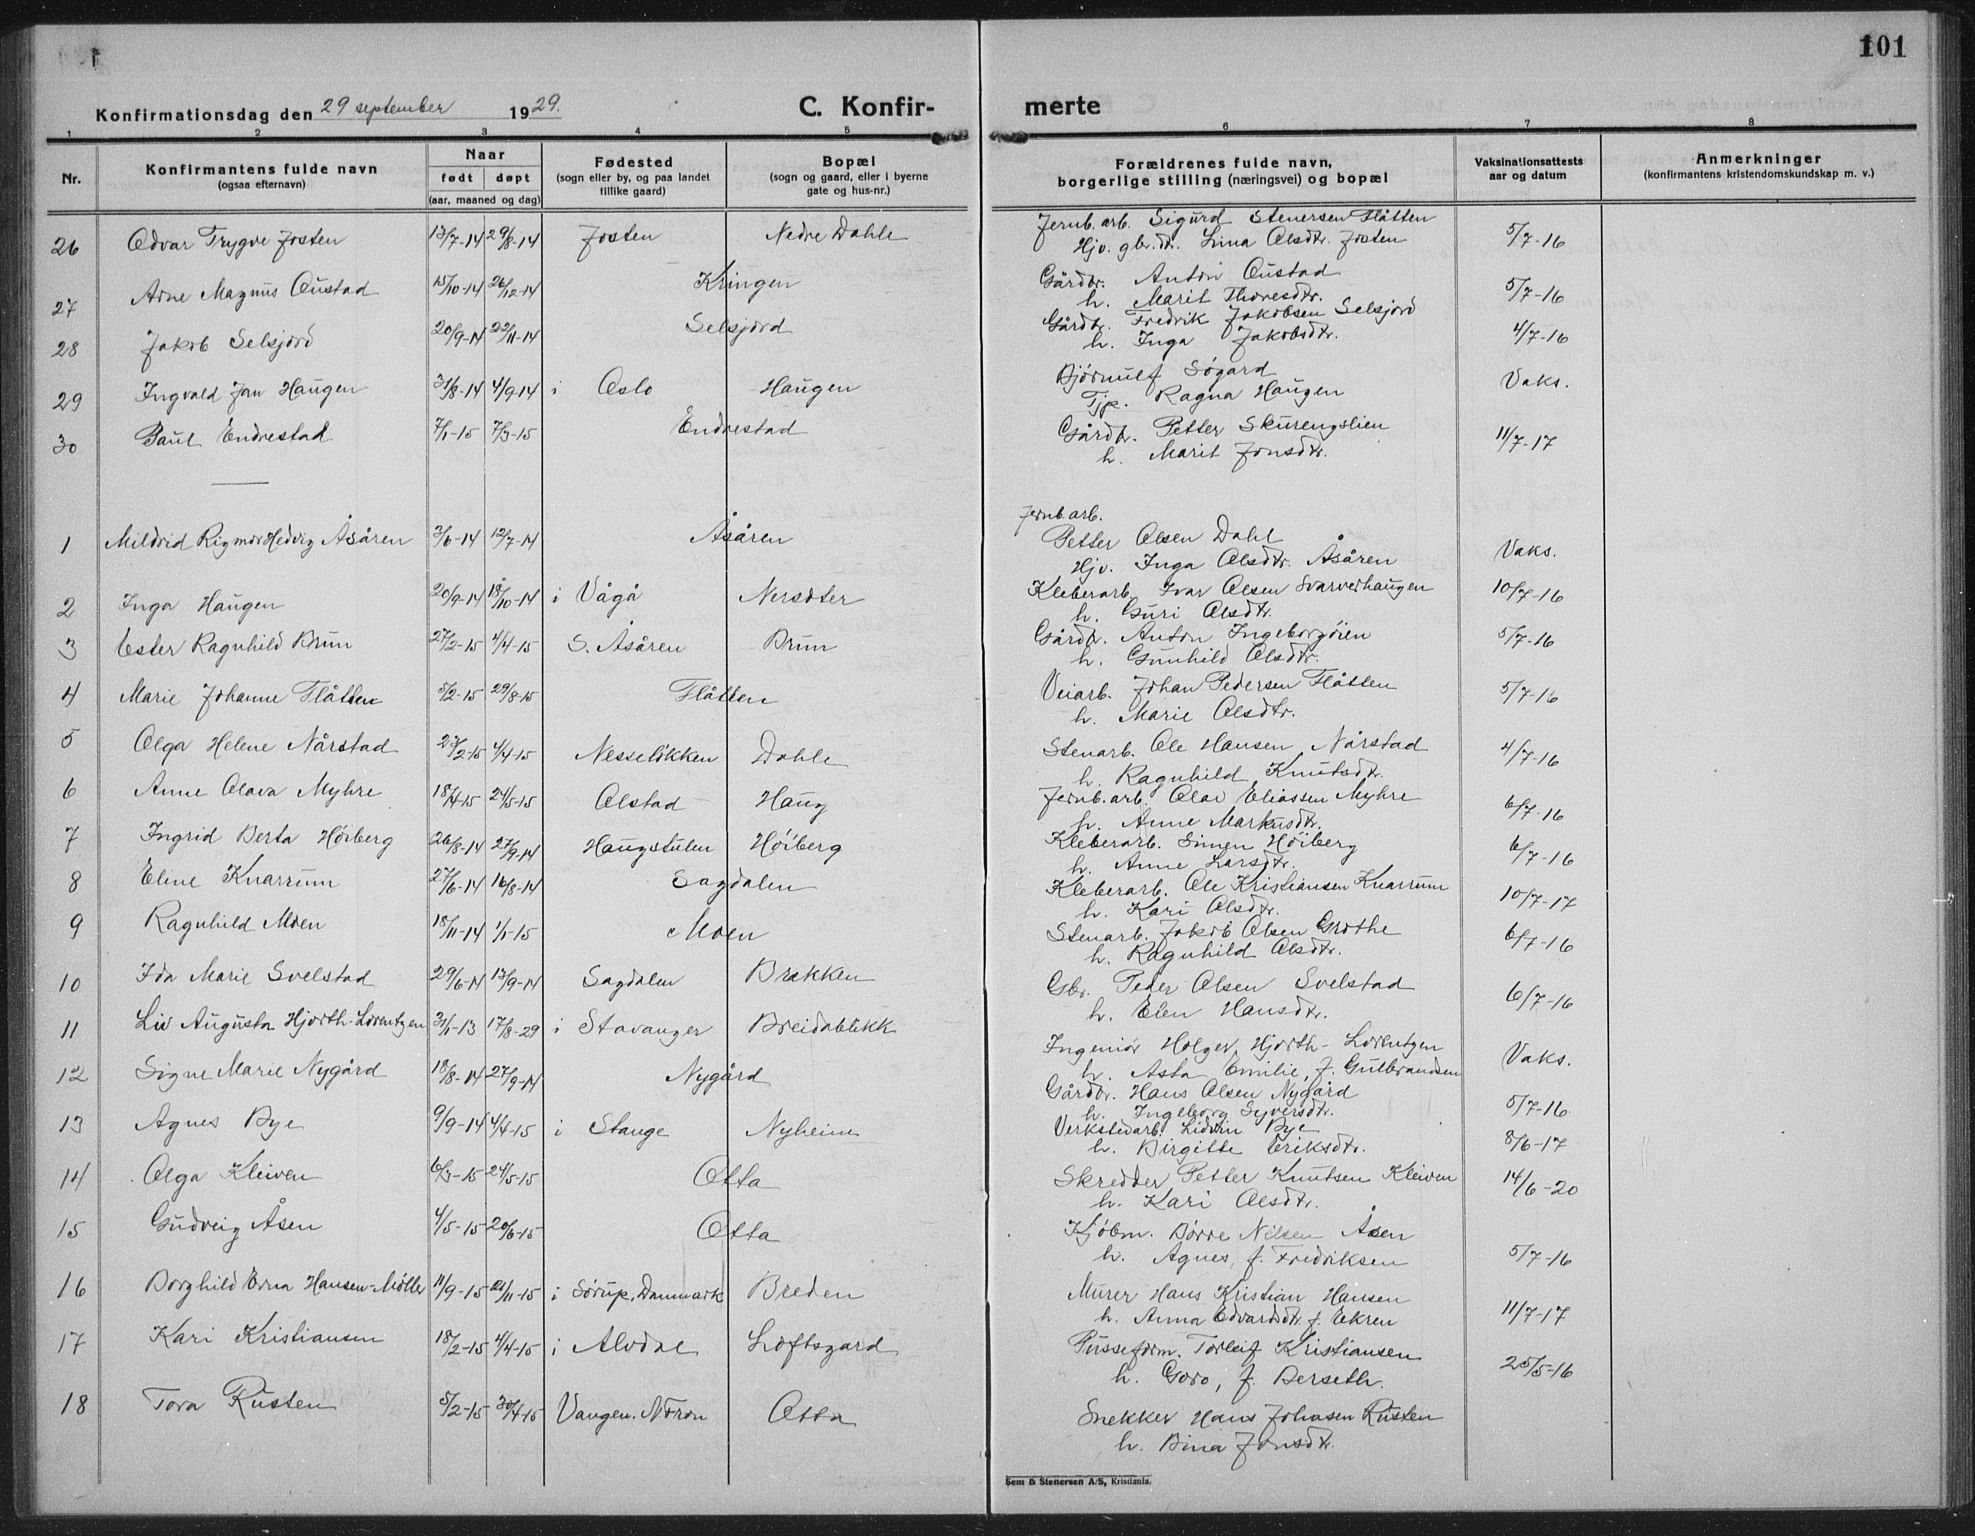 101
Konfirmationsdag den 29 september 1929.
C. Konfir-
merte
1 2 3 4 5 6 7 8
Nr.
Konfirmantens fulde navn
(ogsaa efternavn)
Naar
født døpt
(aar, maaned og dag)
Fødested
(sogn eller by, og paa landet
tillike gaard)
Bopæl
(sogn og gaard, eller i byerne
gate og hus-nr.)
Forældrenes fulde navn,
borgerlige stilling (næringsvei) og bopæl
Vaksinationsattests
aar og datum
Anmerkninger
(konfirmantens kristendomskundskap m. v.)
26 Odvar Trygve Josten 13/7-14 29/8-14 Josten Nedre Dahle Jernb. arb. Sigurd Stenersen Flåtten 5/7-16
Hjv. gbr.dtr. Lina Olsdtr. Josten
27 Arne Magnus Oustad 15/10-14 26/12-14 Kringen Gårdbr. Anton Oustad 5/7-16
h. Marit Thoresdtr.
28 Jakob Selsjord 20/9-14 22/11-14 Selsjord Gårdbr. Fredrik Jakobsen Selsjord 4/7-16
h. Inga Jakobsdtr.
29 Ingvald Jan Haugen 31/8-14 4/9-14 i Oslo Haugen Bjørnulf Søgard Vaks.
Tjp. Ragna Haugen
30 Paul Endrestad 7/1-15 7/3-15 Endrestad Gårdbr. Petter Skurengslien 11/7-17
h. Marit Jonsdtr.
Jernb. arb.
1 Mildrid Rigmor Hedvig Åsåren 3/6-14 12/7-14 Åsåren Petter Olsen Dahl Vaks.
Hjv. Inga Olsdtr. Åsåren
2 Inga Haugen 20/9-14 18/10-14 i Vågå Nersøter Kleberarb. Ivar Olsen Svarverhaugen 10/7-16
h. Guri Olsdtr.
3 Ester Ragnhild Brun 27/2-15 4/4-15 S. Åsåren Brun Gårdbr. Anton Ingeborgöien 5/7-16
h. Gunhild Olsdtr.
4 Marie Johanne Flåtten 5/2-15 29/8-15 Flåtten Veiarb. Johan Pedersen Flåtten 5/7-16
h. Marie Olsdtr.
5 Olga Helene Nårstad 27/2-15 4/4-15 Nesseløkken Dahle Stenarb. Ole Hansen Nårstad 4/7-16
h. Ragnhild Knutsdtr.
6 Anne Olava Myhre 18/4-15 24/5-15 Olstad Haug Jernb. arb. Olav Eliassen Myhre 6/7-16
h. Anne Markusdtr.
7 Ingrid Berta Høiberg 26/8-14 27/9-14 Haugstulen Høiberg Kleberarb. Simen Høiberg 6/7-16
h. Anne Larsdtr.
8 Eline Knarrum 27/6-14 16/8-14 Sagdalen Kleberarb. Ole Kristiansen Knarrum 10/7-17
h. Kari Olsdtr.
9 Ragnhild Moen 18/11-14 1/1-15 Moen Stenarb. Jakob Olsen Grothe 6/7-16
h. Ragnhild Olsdtr.
10 Ida Marie Svelstad 29/6-14 13/9-14 Sagdalen Brækken Gbr. Peder Olsen Svelstad 6/7-16
h. Elen Hansdtr.
11 Liv Augusta Hjorth-Lorentzen 31/1-13 17/8-29 i Stavanger Breidablikk Ingeniør Holger Hjorth-Lorentzen Vaks.
h. Asta Emilie, f. Gulbrandsen
12 Signe Marie Nygård 18/8-14 27/9-14 Nygård Gårdbr. Hans Olsen Nygård 5/7-16
h. Ingeborg Syversdtr.
13 Agnes Bye 9/9-14 4/4-15 i Stange Nyheim Verkstedarb. Lidvin Bye 8/6-17
h. Birgitte Eriksdtr.
14 Olga Kleiven 6/3-15 24/5-15 Otta Skredder Petter Knutsen Kleiven 14/6-20
h. Kari Olsdtr.
15 Gudveig Åsen 4/5-15 20/6-15 Otta Kjøbm. Børre Nilsen Åsen
h. Agnes, f. Fredriksen 5/7-16
16 Borghild Erna Hansen-Møller 11/9-15 21/11-15 i Sørup, Danmark Breden Murer Hans Kristian Hansen
h. Anna Edvardsdtr. f. Ekren 11/7-17
17 Kari Kristiansen 18/2-15 4/4-15 i Alvdal Loftsgard Pusseform. Torleif Kristiansen 25/5-16
h. Goro, f. Berseth.
18 Tora Rusten 5/2-15 30/4-15 Vangen, N. Fron Otta Snekker Hans Johnsen Rusten
h. Bina Jonsdtr.
Sem & Stenersen A/S, Kristiania.